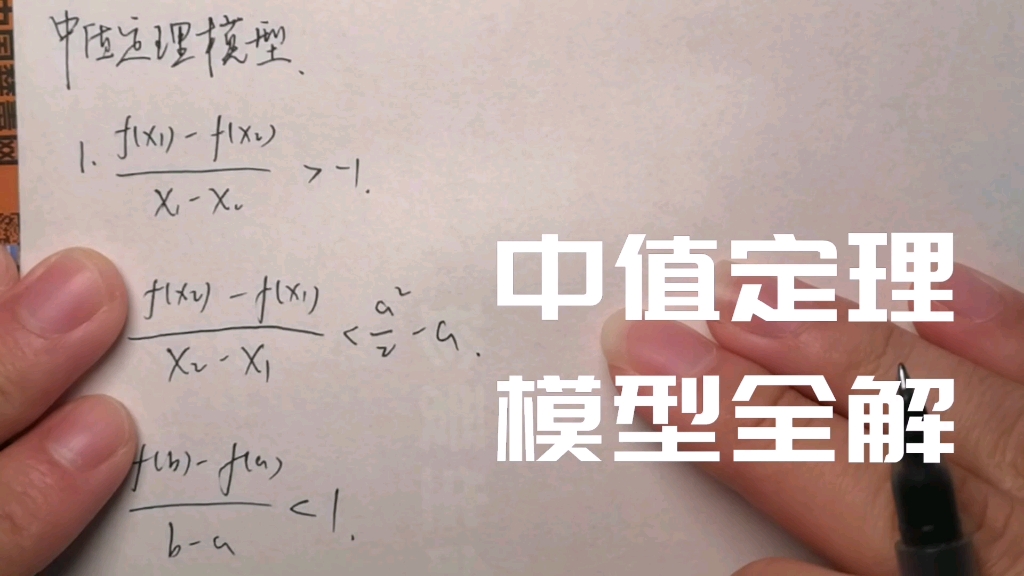 中值定理模型.
1. \frac{f(x_1) - f(x_2)}{x_1 - x_2} > -1.
\frac{f(x_2) - f(x_1)}{x_2 - x_1} < \frac{a^2}{2} - a.
\frac{f(b) - f(a)}{b - a} < 1.
中值定理
模型全解